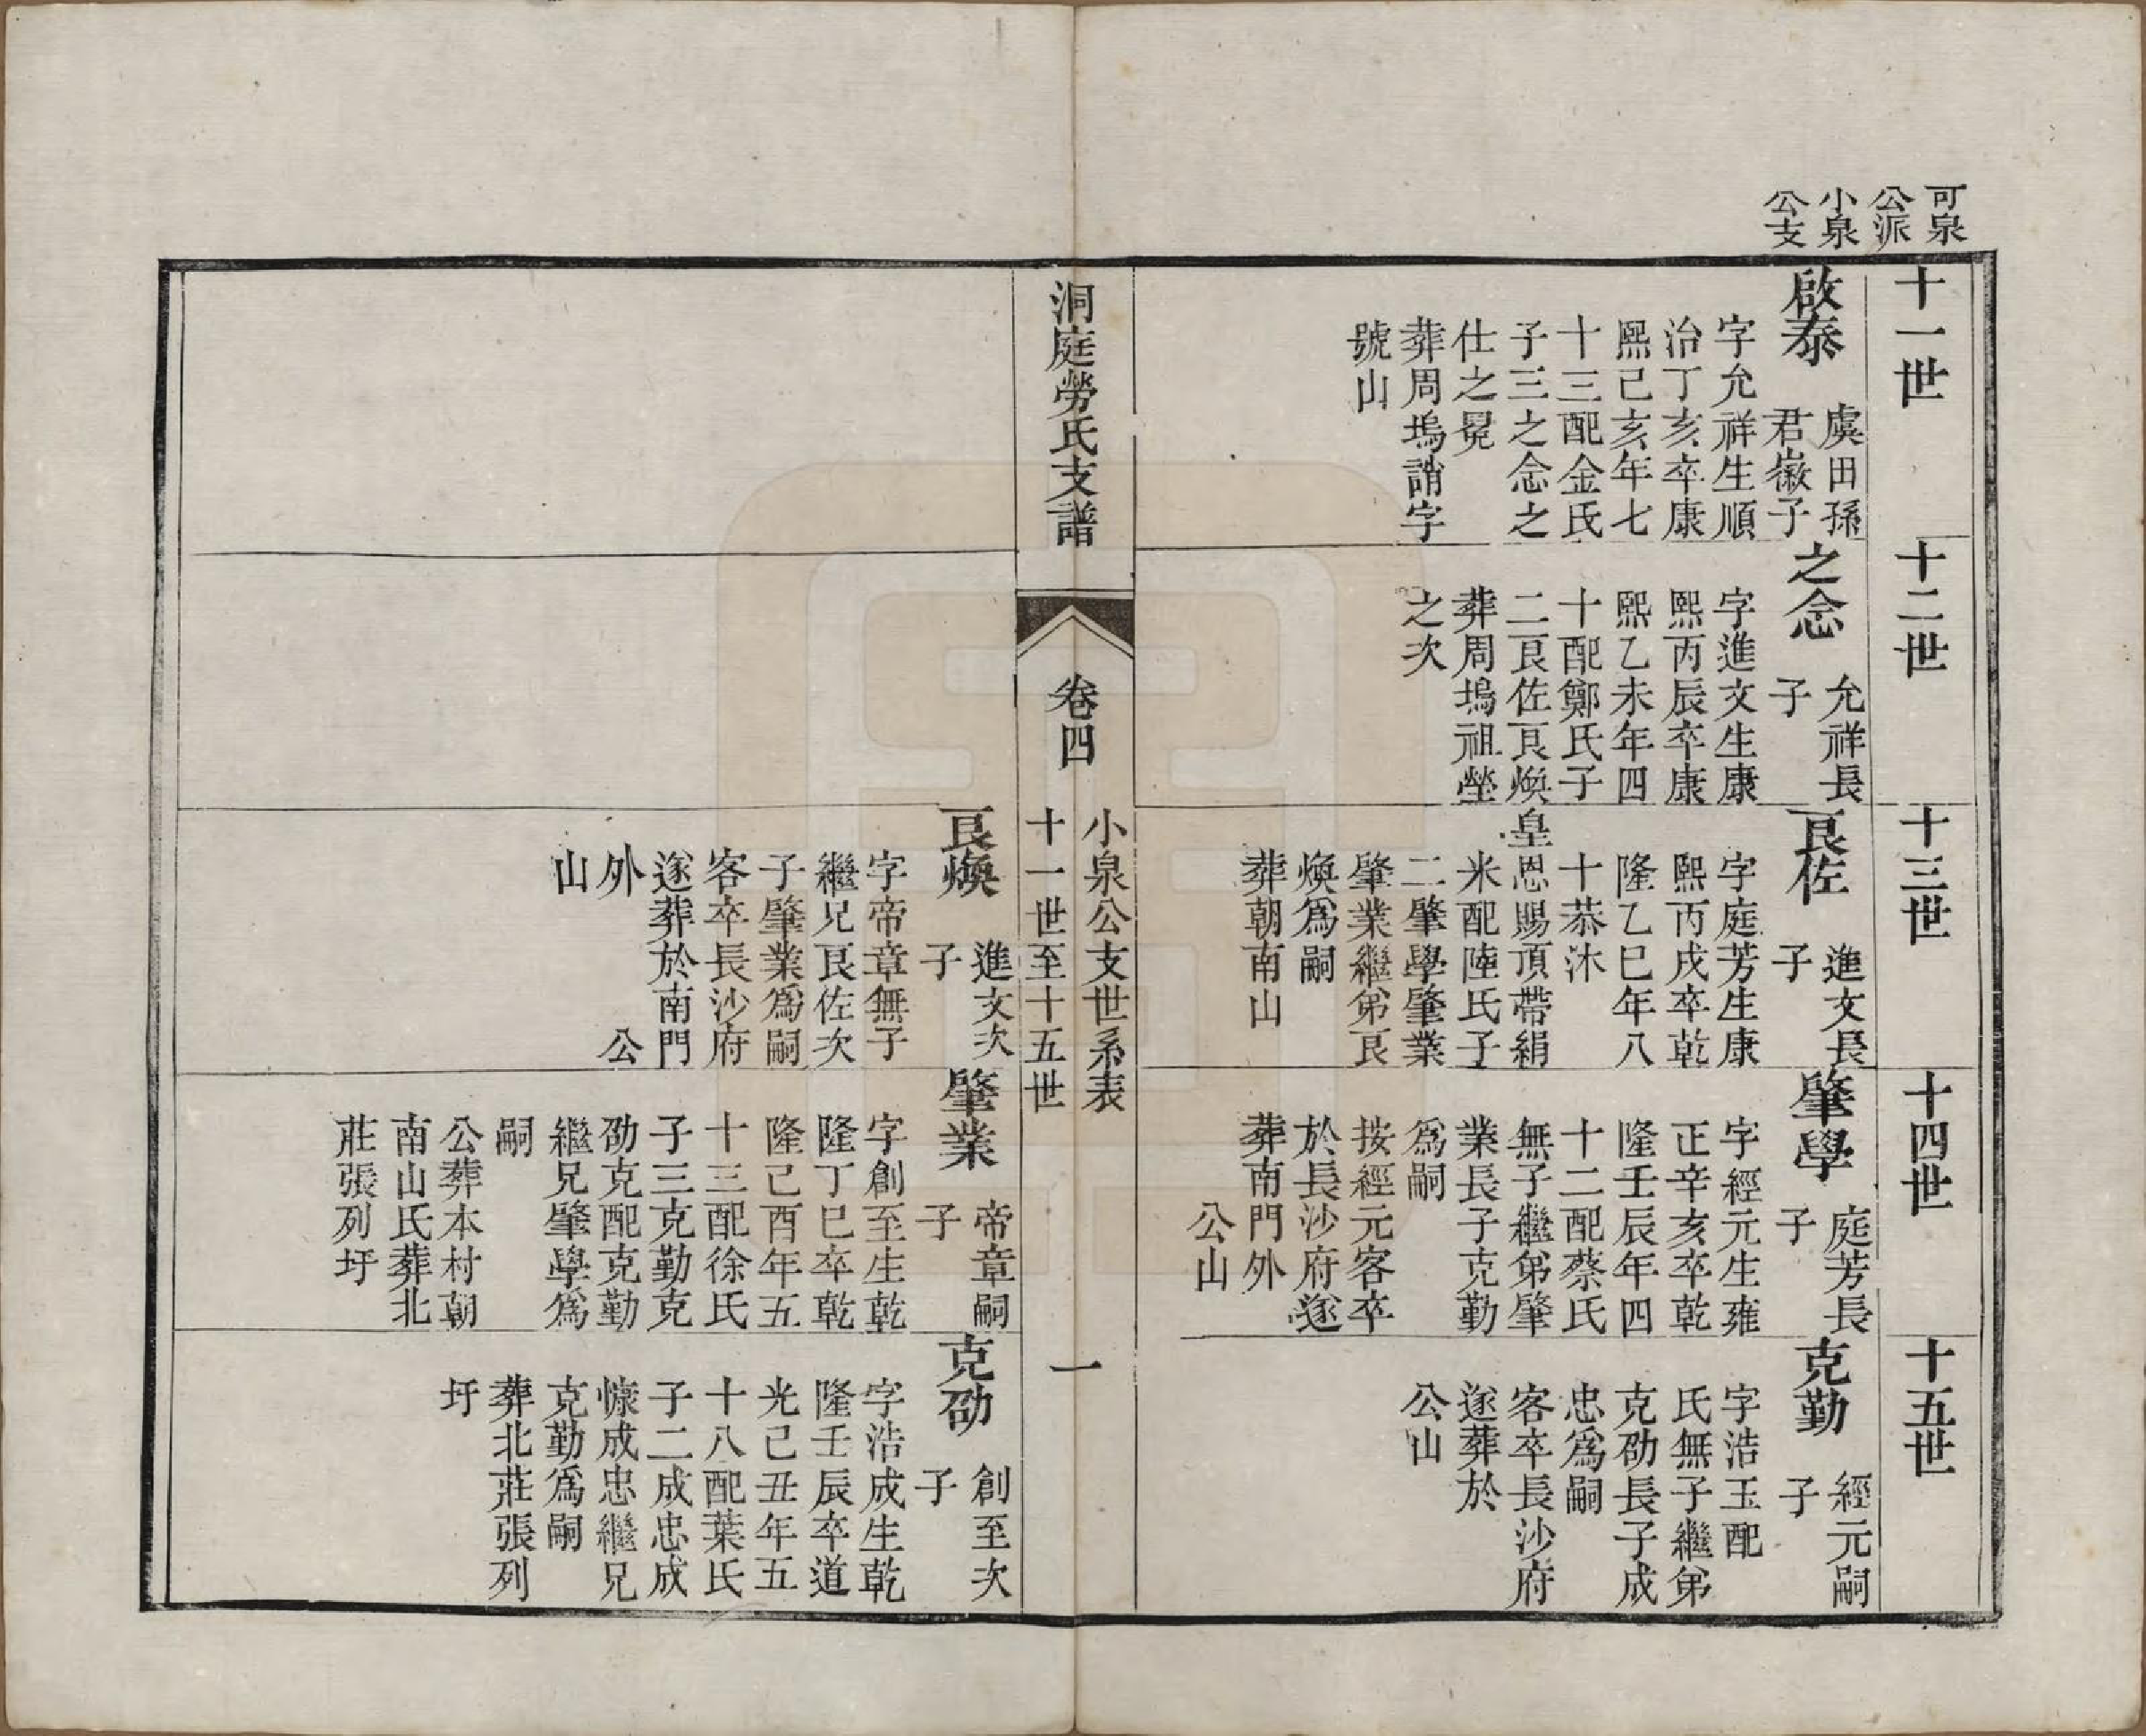 可泉
公派
小泉
公支
十一世
啟泰
虞田孫
君徽子
字允祥生順
治丁亥卒康
熙己亥年七
十三配金氏
子三之念之
仕之冕
葬周塢誚字
號山
十二世
之念
允祥長
子
字進文生康
熙丙辰卒康
熙乙未年四
十配鄭氏子
二良佐良煥
葬周塢祖塋
之次
十三世
良佐
進文長
子
字庭芳生康
熙丙戌卒乾
隆乙巳年八
十恭沐
皇恩賜頂帶絹
米配陸氏子
二肇學肇業
肇業繼弟良
煥爲嗣
葬朝南山
十四世
肇學
庭芳長
子
字經元生雍
正辛亥卒乾
隆壬辰年四
十二配蔡氏
無子繼弟肇
業長子克勤
爲嗣
按經元客卒
於長沙府遂
葬南門外
公山
十五世
克勤
經元嗣
子
字浩玉配
氏無子繼弟
克劭長子成
忠爲嗣
客卒長沙府
遂葬於
公山
洞庭勞氏支譜
卷四
小泉公支世系表
十一世至十五世
一
良煥
進文次
子
字帝章無子
繼兄良佐次
子肇業爲嗣
客卒長沙府
遂葬於南門
外 公
山
肇業
帝章嗣
子
字創至生乾
隆丁巳卒乾
隆己酉年五
十三配徐氏
子三克勤克
劭克配克勤
繼兄肇學爲
嗣
公葬本村朝
南山氏葬北
莊張列圩
克劭
創至次
子
字浩成生乾
隆壬辰卒道
光己丑年五
十八配葉氏
子二成忠成
慷成忠繼兄
克勤爲嗣
葬北莊張列
圩